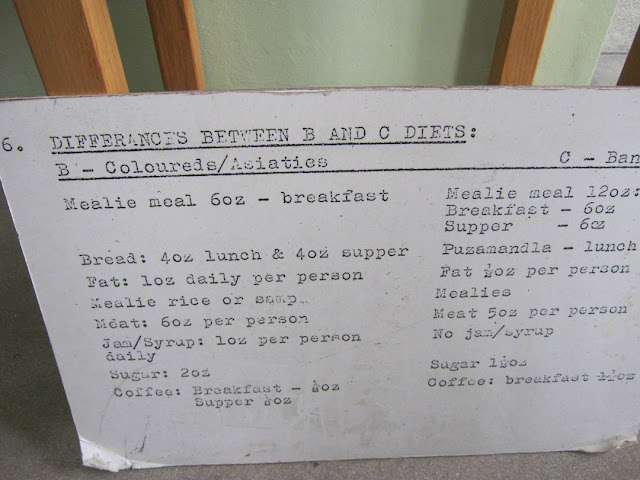 6. DIFFERANCES BETWEEN B AND C DIETS:
B - Coloureds/Asiatics C - Ban
Mealie meal 6oz - breakfast
Bread: 4oz lunch & 4oz supper
Fat: 1oz daily per person
Mealie rice or samp
Meat: 6oz per person
Jam/Syrup: 1oz per person
daily
Sugar: 2oz
Coffee: Breakfast -
Supper
Mealie meal 12oz:
Breakfast - 6oz
Supper - 6oz
Puzamandla - lunch
Fat ½oz per person
Mealies
Meat 5oz per person
No jam/syrup
Sugar 1½oz
Coffee: breakfast